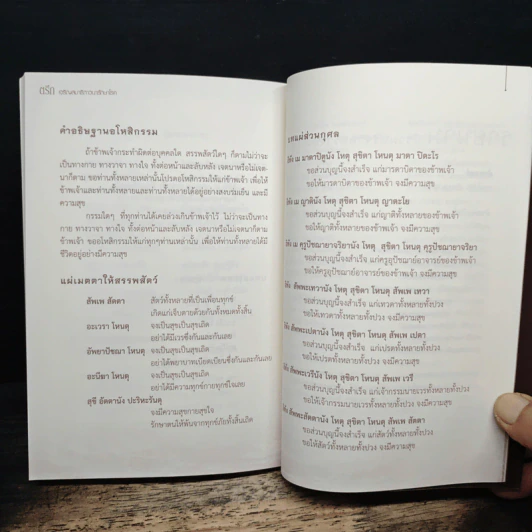 ตรีก
คำอธิษฐานอโหสิกรรม
ถ้าข้าพเจ้ากระทำผิดต่อบุคคลใด สรรพสัตว์ใดๆ ก็ตามไม่ว่าจะ
เป็นทางกาย ทางวาจา ทางใจ ทั้งต่อหน้าและลับหลัง เจตนาหรือไม่เจต-
นาก็ตาม ขอท่านทั้งหลายเหล่านั้นโปรดอโหสิกรรมให้แก่ข้าพเจ้า เพื่อให้
ข้าพเจ้าและท่านทั้งหลายและท่านทั้งหลายได้อยู่อย่างสงบร่มเย็น และมี
ความสุข
กรรมใดๆ ที่ทุกท่านได้เคยล่วงเกินข้าพเจ้าไว้ ไม่ว่าจะเป็นทาง
กาย ทางวาจา ทางใจ ทั้งต่อหน้าและลับหลัง เจตนาหรือไม่เจตนาก็ตาม
ข้าพเจ้า ขออโหสิกรรมให้แก่ทุกๆท่านเหล่านั้น เพื่อให้ท่านทั้งหลายได้มี
ชีวิตอยู่อย่างมีความสุข
แผ่เมตตาให้สรรพสัตว์
สัพเพ สัตตา สัตว์ทั้งหลายที่เป็นเพื่อนทุกข์
เกิดแก่เจ็บตายด้วยกันทั้งหมดทั้งสิ้น
อะเวรา โหนตุ จงเป็นสุขเป็นสุขเถิด
อย่าได้มีเวรซึ่งกันและกันเลย
อัพยาปัชฌา โหนตุ จงเป็นสุขเป็นสุขเถิด
อย่าได้พยาบาทเบียดเบียนซึ่งกันและกันเลย
อะนีฆา โหนตุ จงเป็นสุขเป็นสุขเถิด
อย่าได้มีความทุกข์กายทุกข์ใจเลย
สุขี อัตตานัง ปะริหะรันตุ
จงมีความสุขกายสุขใจ
รักษาตนให้พ้นจากทุกข์ภัยทั้งสิ้นเถิด
บทแผ่ส่วนกุศล
อิทัง เม มาตาปิตูนัง โหตุ สุขิตา โหนตุ มาตา ปิตะโร
ขอส่วนบุญนี้จงสำเร็จ แก่มารดาบิดาของข้าพเจ้า
ขอให้มารดาบิดาของข้าพเจ้า จงมีความสุข
อิทัง เม ญาตินัง โหตุ สุขิตา โหนตุ ญาตะโย
ขอส่วนบุญนี้จงสำเร็จ แก่ญาติทั้งหลายของข้าพเจ้า
ขอให้ญาติทั้งหลายของข้าพเจ้า จงมีความสุข
อิทัง เม คุรูปัชฌายาจริยานัง โหตุ สุขิตา โหนตุ คุรูปัชฌายาจริยา
ขอส่วนบุญนี้จงสำเร็จ แก่ครูอุปัชฌาย์อาจารย์ของข้าพเจ้า
ขอให้ครูอุปัชฌาย์อาจารย์ของข้าพเจ้า จงมีความสุข
อิทัง สัพพะเทวานัง โหตุ สุขิตา โหนตุ สัพเพ เทวา
ขอส่วนบุญนี้จงสำเร็จ แก่เทวดาทั้งหลายทั้งปวง
ขอให้เทวดาทั้งหลายทั้งปวง จงมีความสุข
อิทัง สัพพะเปตานัง โหตุ สุขิตา โหนตุ สัพเพ เปตา
ขอส่วนบุญนี้จงสำเร็จ แก่เปรตทั้งหลายทั้งปวง
ขอให้เปรตทั้งหลายทั้งปวง จงมีความสุข
อิทัง สัพพะเวรีนัง โหตุ สุขิตา โหนตุ สัพเพ เวรี
ขอส่วนบุญนี้จงสำเร็จ แก่เจ้ากรรมนายเวรทั้งหลายทั้งปวง
ขอให้เจ้ากรรมนายเวรทั้งหลายทั้งปวง จงมีความสุข
อิทัง สัพพะสัตตานัง โหตุ สุขิตา โหนตุ สัพเพ สัตตา
ขอส่วนบุญนี้จงสำเร็จ แก่สัตว์ทั้งหลายทั้งปวง
ขอให้สัตว์ทั้งหลายทั้งปวง จงมีความสุข